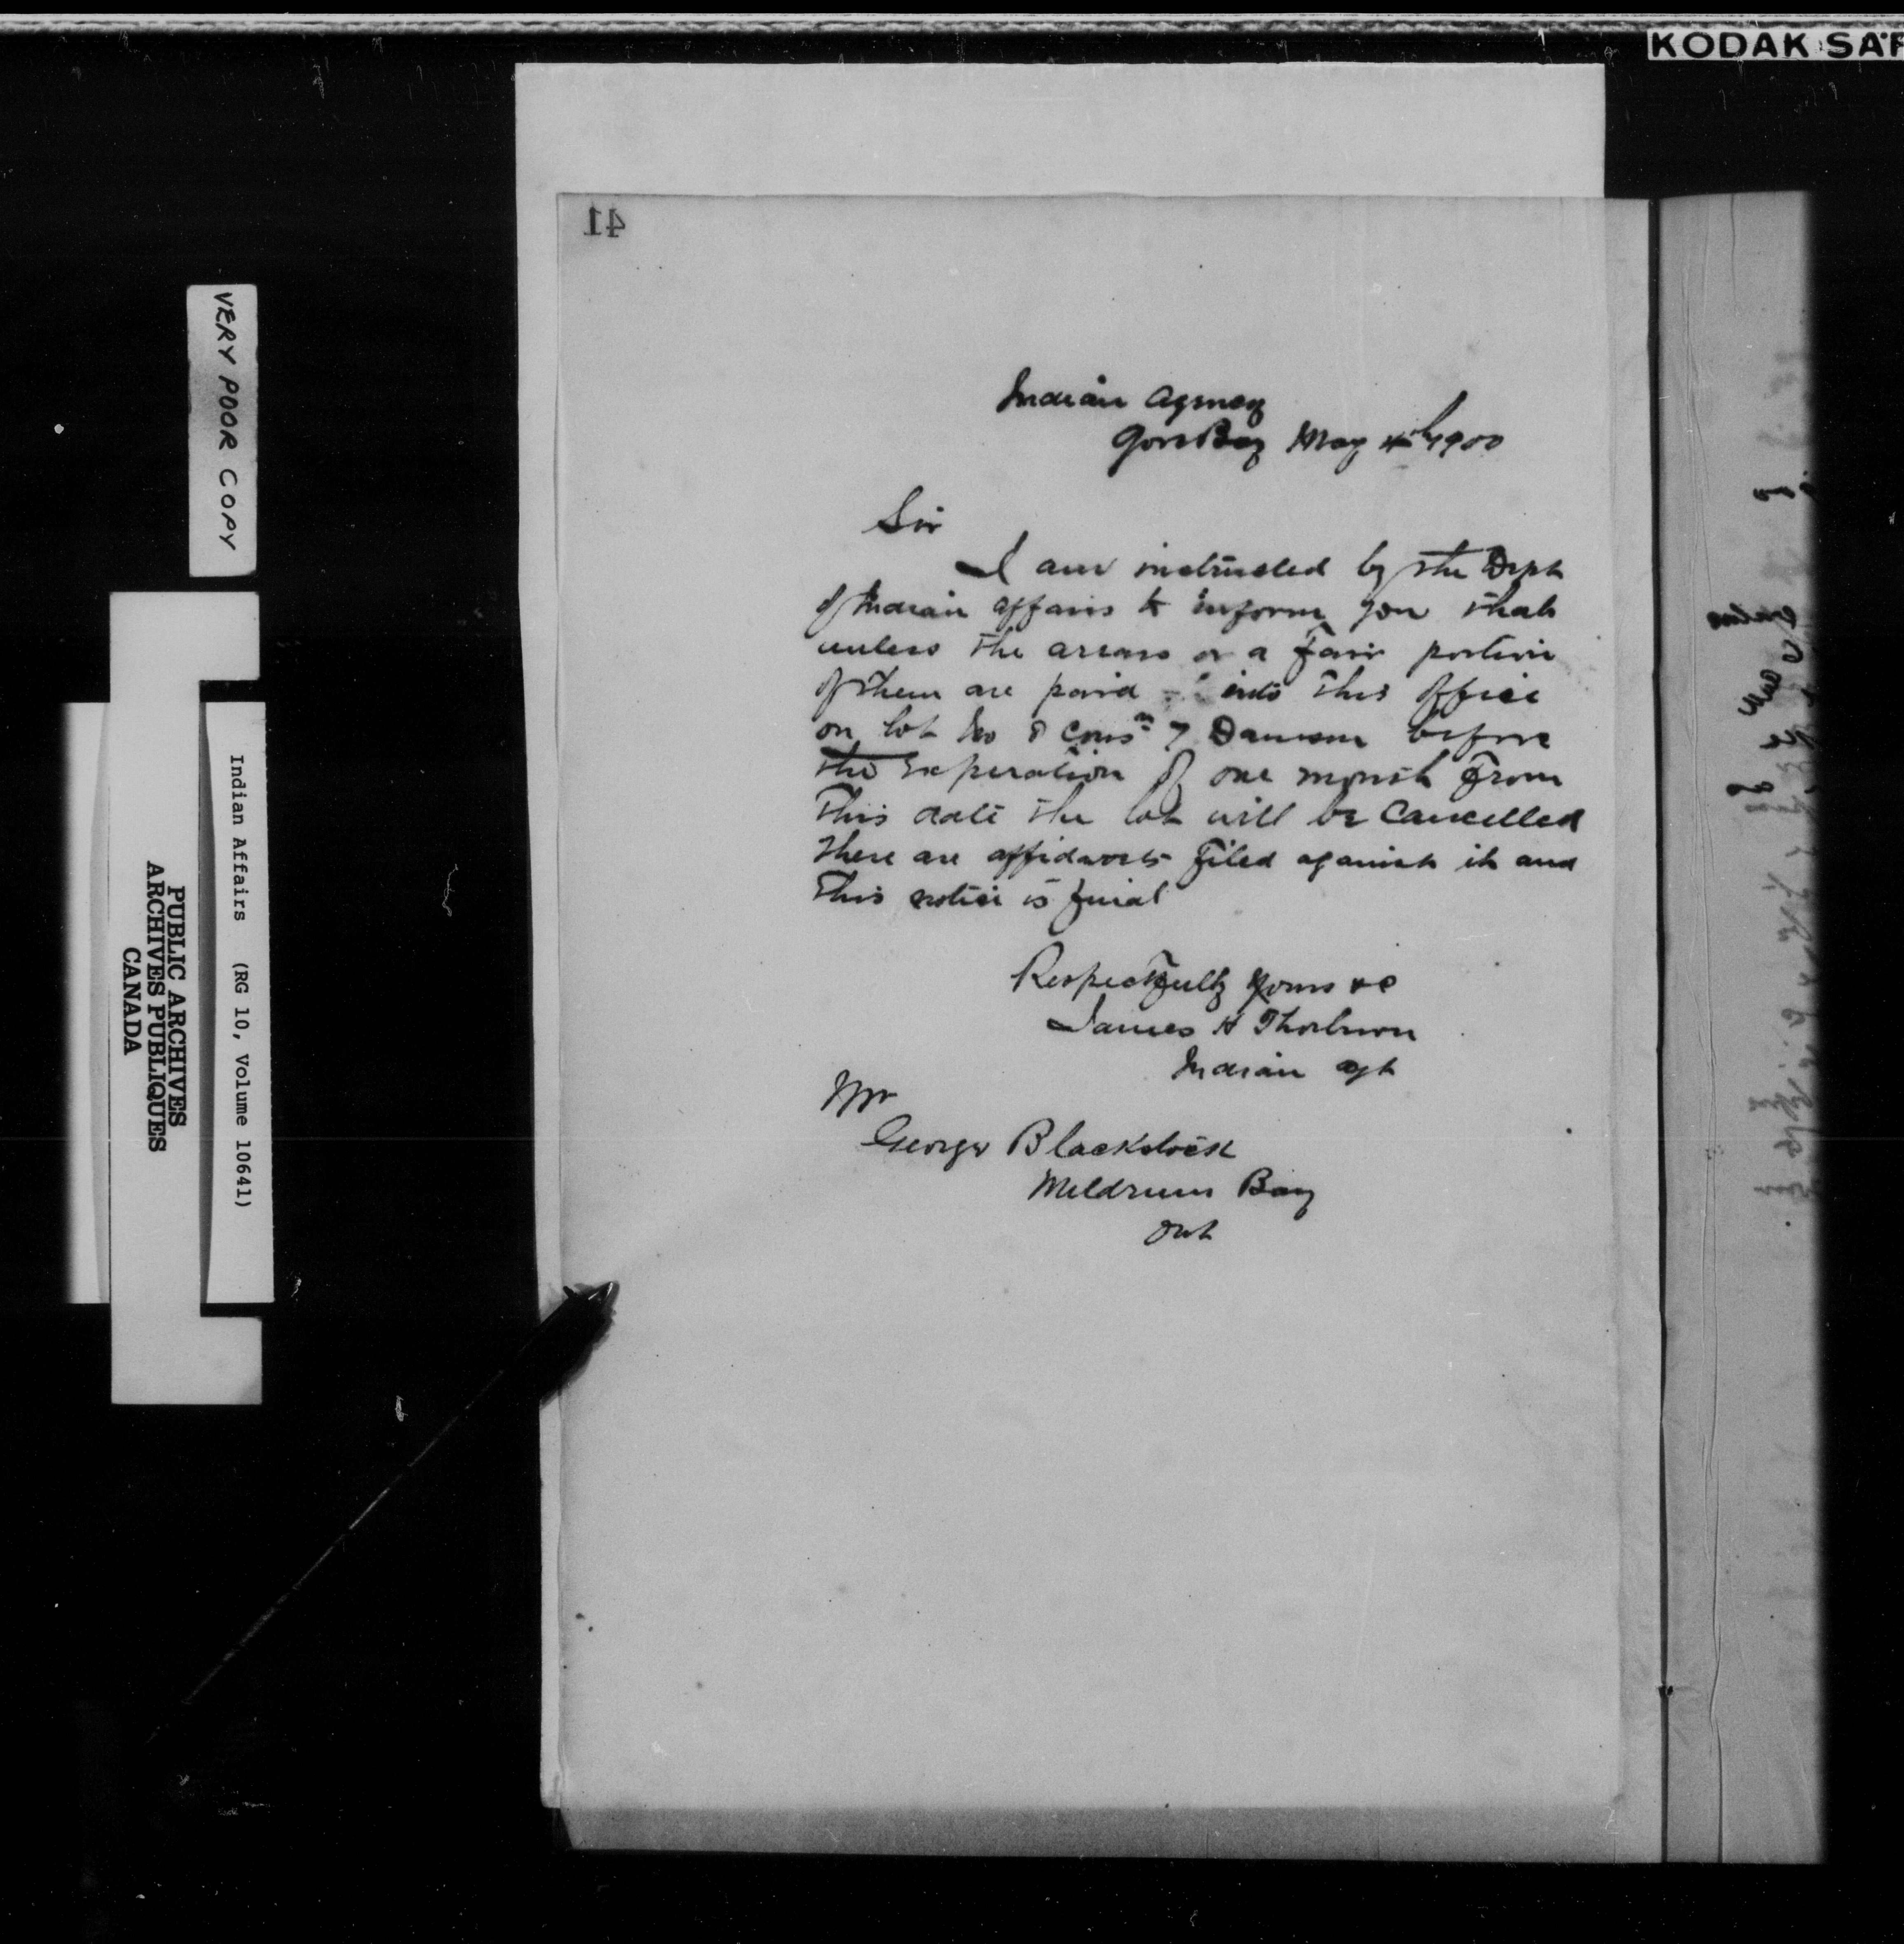 KODAK SAF
41
VERY POOR COPY
Indian Affairs (RG 10, Volume 10641)
PUBLIC ARCHIVES
ARCHIVES PUBLIQUES
CANADA
Indian Agency
Gore Bay May 4th 1900
Sir
I am instructed by the Dept
of Indian affairs to inform you that
unless the arrears or a fair portion
of them are paid into this office
on lot No 8 Consn 7 Dawson before
the Experation of one month from
this date the lot will be Cancelled
there are affidavits filed against it and
this notice is final
Respectfully yours &c
James H Thorburn
Indian agt
Mr
George Blackstock
Meldrum Bay
Ont